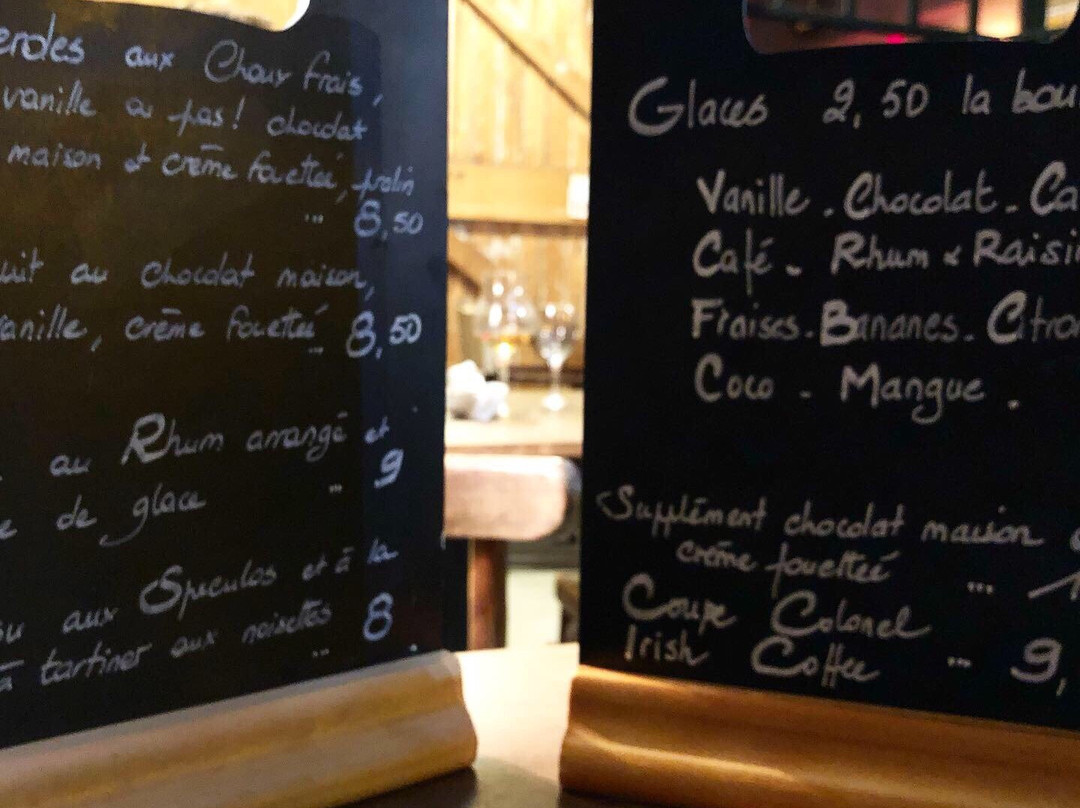 eroles aux Choux frais,
vanille ou pas! chocolat
maison et crème fouettée, pralin
... 8,50
uit au chocolat maison,
anille, crème fouettée 8,50
au Rhum arrangé et
e de glace ... 9
su aux Speculos et à la
à tartiner aux noisettes ... 8
Glaces 2,50 la bou
Vanille . Chocolat - Ca
Café - Rhum & Raisi
Fraises - Bananes - Citro
Coco - Mangue .
Supplément chocolat maison
crème fouettée ... 1
Coupe Colonel
Irish Coffee ... 9,